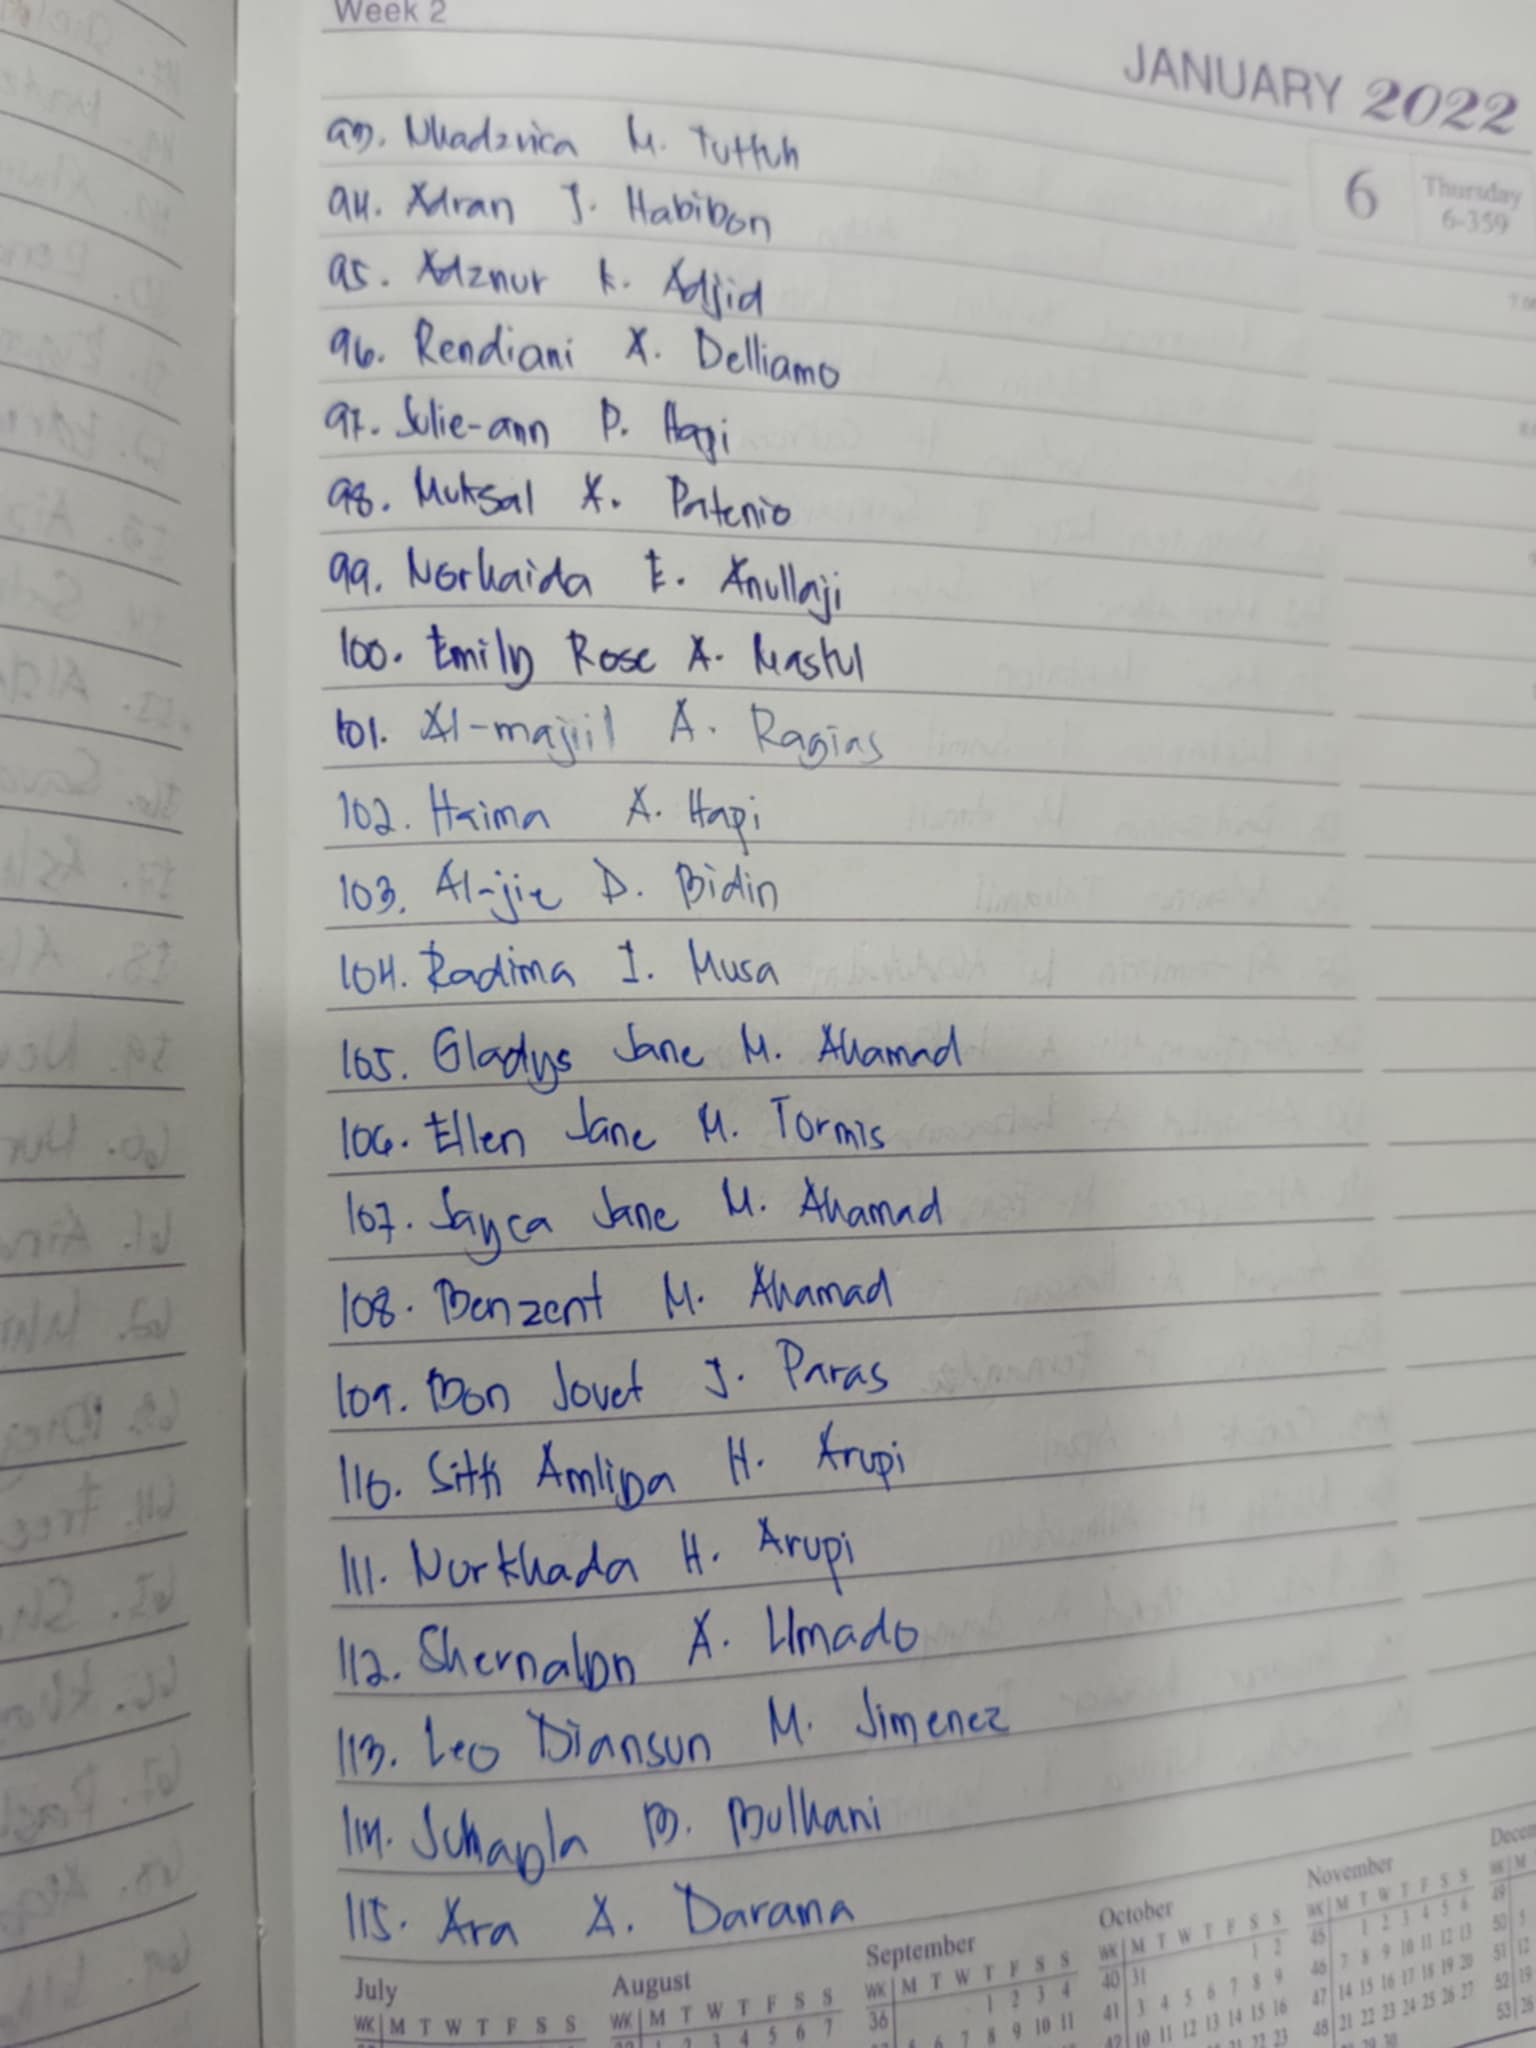 Week 2
JANUARY 2022
6 Thursday
6-359
93. Nhadzrica M. Tuttuh
94. Adran J. Habibon
95. Adznur K. Adjid
96. Rendiani A. Delliamo
97. Julie-ann P. Hapi
98. Muksal A. Patenio
99. Norhaida E. Anullaji
100. Emily Rose A. Mastul
101. Al-majiil A. Ragias
102. Haima A. Hapi
103. Al-jie D. Bidin
104. Radima I. Musa
105. Gladys Jane M. Ahamad
106. Ellen Jane M. Tormis
107. Jayca Jane M. Ahamad
108. Benzent M. Ahamad
109. Bon Jovet J. Paras
110. Sitti H. Arupi
111. Nurkhada H. Arupi
112. A. Umado
113. Leo Diansun M. Jimenez
114. B. Bulhani
115. Ara A. Darama
July August September October November
WK M T W T F S S
WK M T W T F S S
WK M T W T F S S
36 1 2 3 4
WK M T W T F S S
40 31 1 2
41 3 4 5 6 7 8 9
10 11 12 13 14 15 16
WK M T W T F S S
45 1 2 3 4 5 6
46 7 8 9 10 11 12 13
47 14 15 16 17 18 19 20
48 21 22 23 24 25 26 27